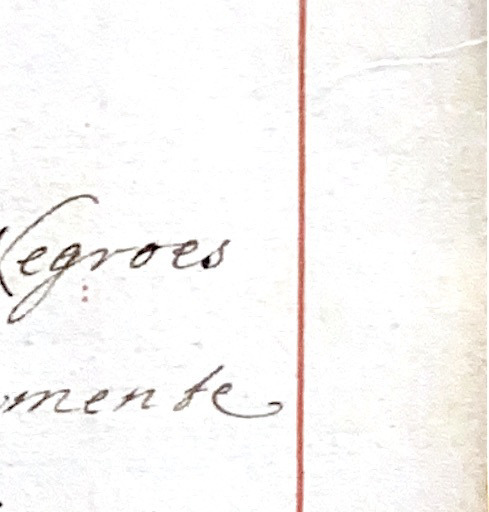 Negroes
mente